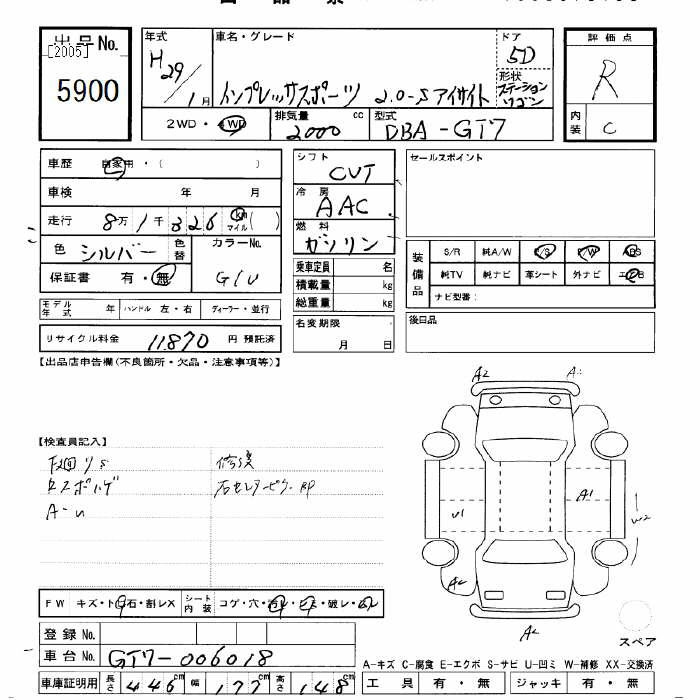 出品No.
[2005]
5900
年式
H29/1月
車名・グレード
インプレッサスポーツ 2.0-S アイサイト
ドア
5D
形状
ステーションワゴン
2WD・4WD
排気量 2000 cc
型式 DBA-GT7
評価点
R
内装 C
車歴 自家用・( )
車検 年 月
走行 8万1千326 km マイル( )
色 シルバー 色替
カラーNo.
G1U
保証書 有・無
モデル年式 年 ハンドル 左・右 ディーラー・並行
リサイクル料金 11,870 円 預託済
シフト
CVT
冷房
AAC
燃料
ガソリン
乗車定員 名
積載量 kg
総重量 kg
名変期限
月 日
セールスポイント
装備品
S/R 純A/W P/S P/W ABS
純TV 純ナビ 革シート 外ナビ エアB
ナビ型番:
後日品
【出品店申告欄(不良箇所・欠品・注意事項等)】
【検査員記入】
A-U
A2
A1
U1
W2
A2
A2
FW キズ・ト石・割レX シート内装 コゲ・穴・汚レ・破レ
登録No.
車台No. GT7-006018
車庫証明用 長さ 446cm 幅 177cm 高さ 148cm
スペア
A-キズ C-腐食 E-エクボ S-サビ U-凹ミ W-補修 XX-交換済
工具 有・無 ジャッキ 有・無